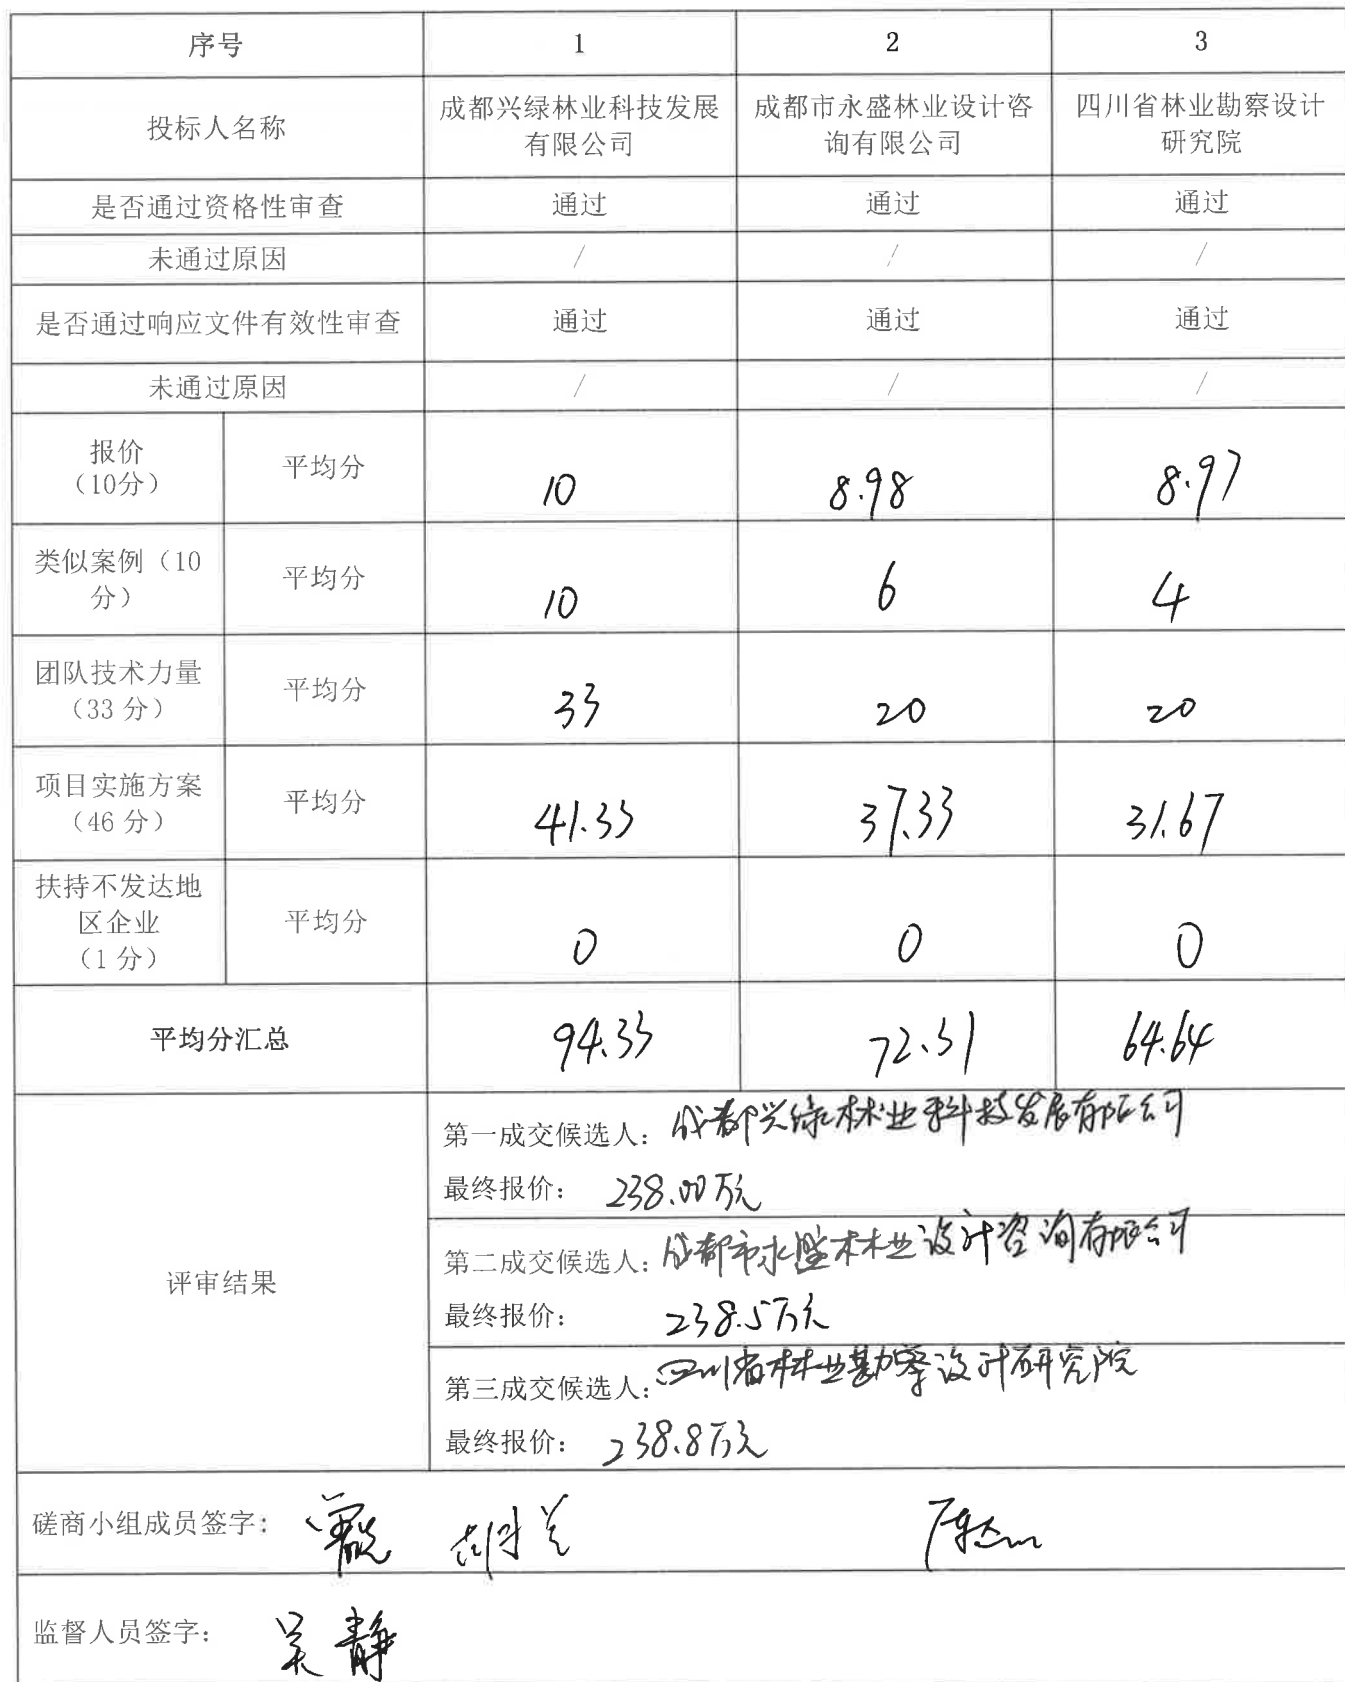 序号 1 2 3
投标人名称 成都兴绿林业科技发展有限公司 成都市永盛林业设计咨询有限公司 四川省林业勘察设计研究院
是否通过资格性审查 通过 通过 通过
未通过原因 / / /
是否通过响应文件有效性审查 通过 通过 通过
未通过原因 / / /
报价（10分） 平均分 10 8.98 8.97
类似案例（10分） 平均分 10 6 4
团队技术力量（33分） 平均分 33 20 20
项目实施方案（46分） 平均分 41.33 37.33 31.67
扶持不发达地区企业（1分） 平均分 0 0 0
平均分汇总 94.33 72.31 64.64
评审结果
第一成交候选人：成都兴绿林业科技发展有限公司
最终报价： 238.00万元
第二成交候选人：成都市永盛林业设计咨询有限公司
最终报价： 238.5万元
第三成交候选人：四川省林业勘察设计研究院
最终报价： 238.8万元
磋商小组成员签字：
监督人员签字： 吴静